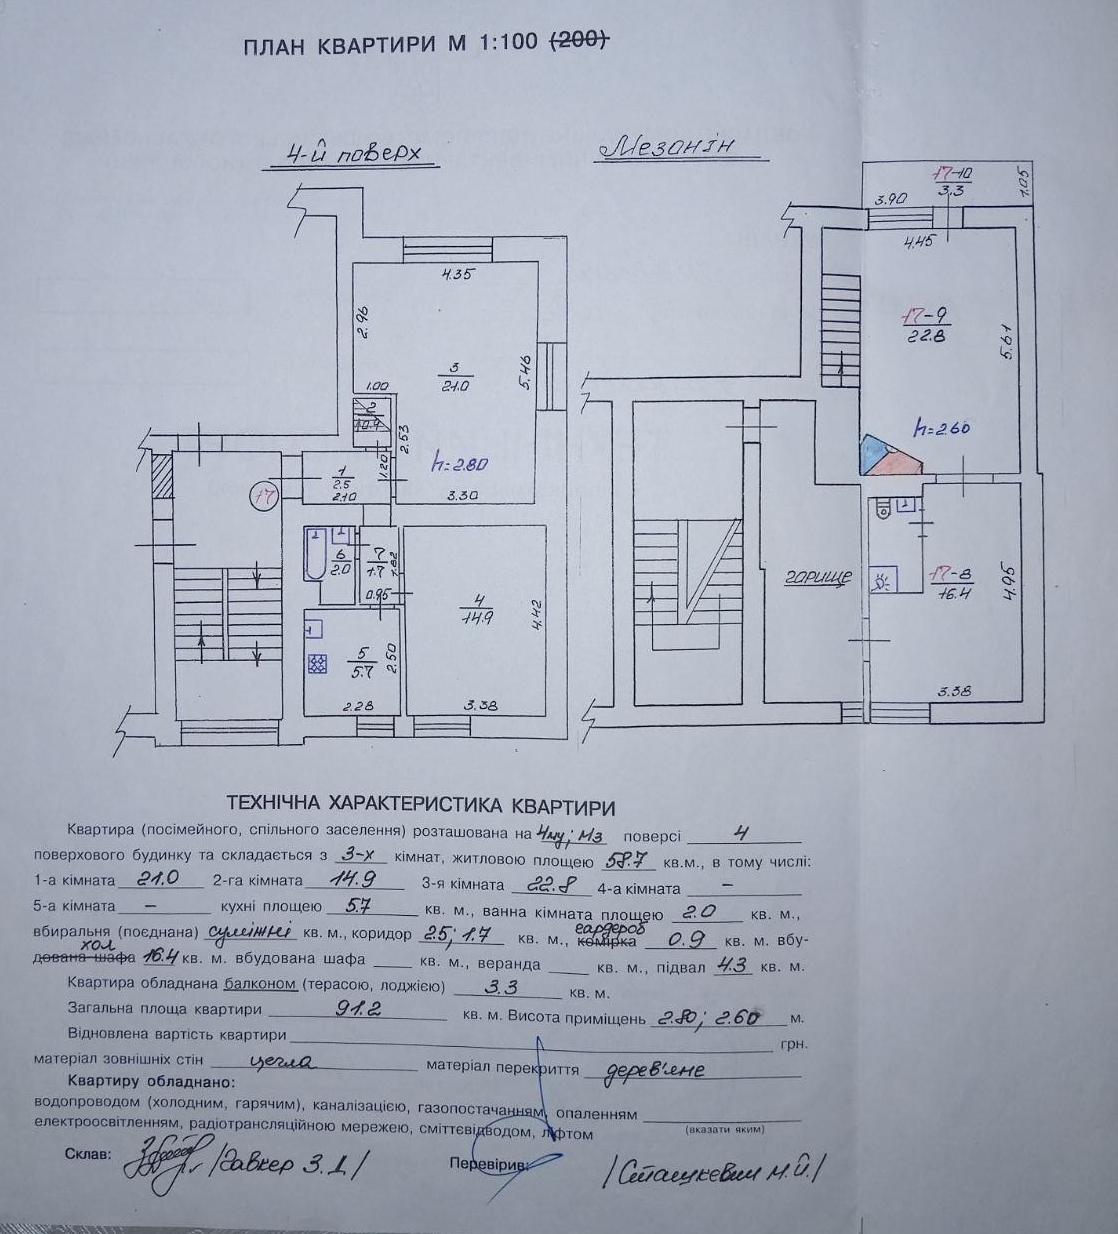 ПЛАН КВАРТИРИ М 1:100 (200)
4-й поверх
Мезанін
17-10
3.3
1.05
3.90
4.45
4.35
2.96
17-9
22.8
5.61
3
21.0
5.46
1.00
2
0.9
2.53
h=2.80
h=2.60
1
2.5
2.10
1.20
3.30
17
6
2.0
7
1.7
1.82
0.95
4
14.9
4.42
горище
17-8
16.4
4.95
5
5.7
2.50
2.28
3.38
3.38
ТЕХНІЧНА ХАРАКТЕРИСТИКА КВАРТИРИ
Квартира (посімейного, спільного заселення) розташована на 4му; мз поверсі 4
поверхового будинку та складається з 3-х кімнат, житловою площею 58.7 кв.м., в тому числі:
1-а кімната 21.0 2-га кімната 14.9 3-я кімната 22.8 4-а кімната –
5-а кімната – кухні площею 5.7 кв. м., ванна кімната площею 2.0 кв. м.,
вбиральня (поєднана) суміжні кв. м., коридор 2.5; 1.7 кв. м., гардероб комірка 0.9 кв. м. вбу-
дована шафа хол 16.4 кв. м. вбудована шафа кв. м., веранда кв. м., підвал 4.3 кв. м.
Квартира обладнана балконом (терасою, лоджією) 3.3 кв. м.
Загальна площа квартири 91.2 кв. м. Висота приміщень 2.80; 2.60 м.
Відновлена вартість квартири грн.
матеріал зовнішніх стін цегла матеріал перекриття дерев'яне
Квартиру обладнано:
водопроводом (холодним, гарячим), каналізацією, газопостачанням, опаленням
(вказати яким)
електроосвітленням, радіотрансляційною мережею, сміттєвідводом, ліфтом
Склав: /Гавкер З.Д/ Перевірив: /Сташкевич М.Й./